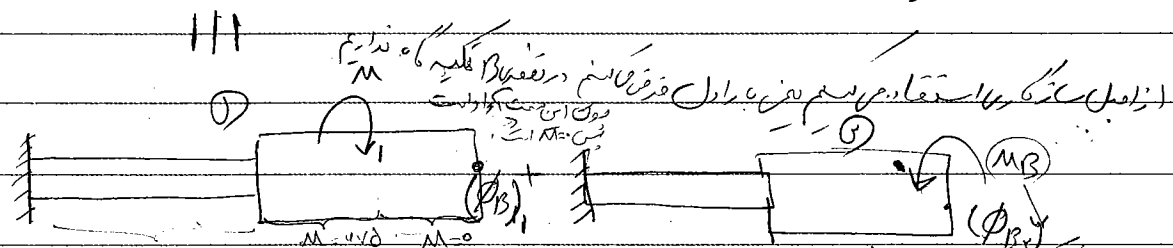 از اصل سازگاری استفاده می کنیم یعنی بار اول فرض می کنیم در نقطه B تکیه گاه نداریم
M
چون این قسمت آزاد است
پس M=0 است.
① ②
1 MB
(ϕB)1 (ϕB2)
M=0